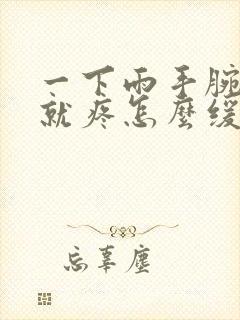 一下雨手腕
就疼怎麼緩
忘辜塵